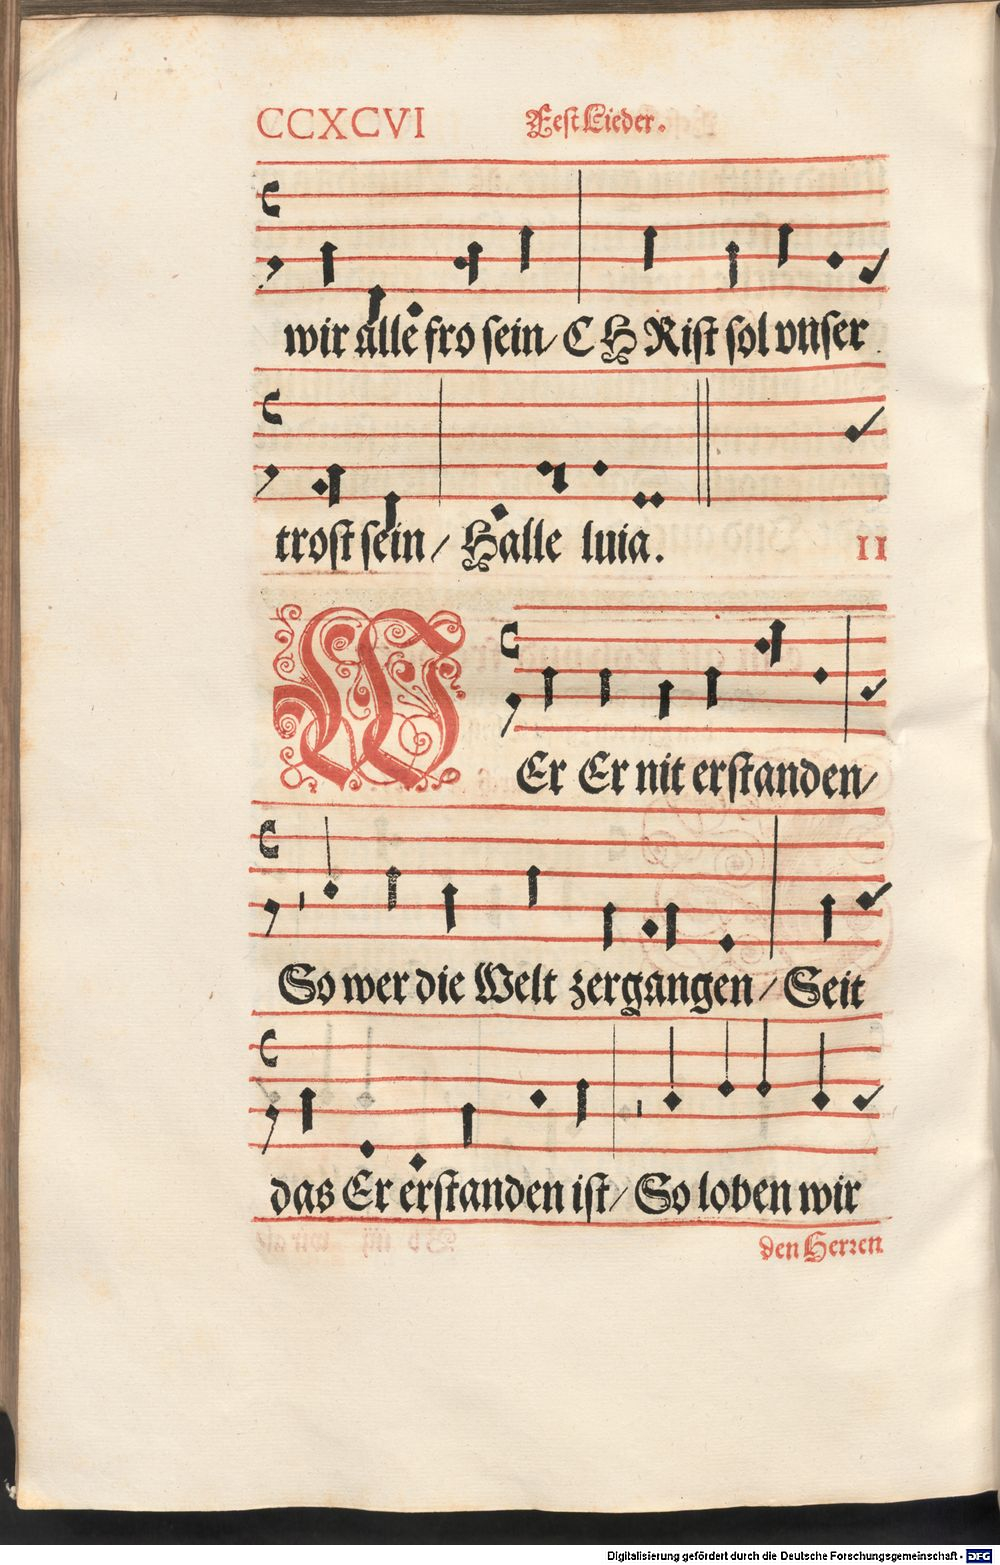 CCXCVI Fest Lieder.
wir alle fro sein/ CHRist sol vnser
trost sein/ Halle luia.
II
WEr Er nit erstanden/
So wer die Welt zergangen/ Seit
das Er erstanden ist/ So loben wir
den Herren
Digitalisierung gefördert durch die Deutsche Forschungsgemeinschaft - DFG